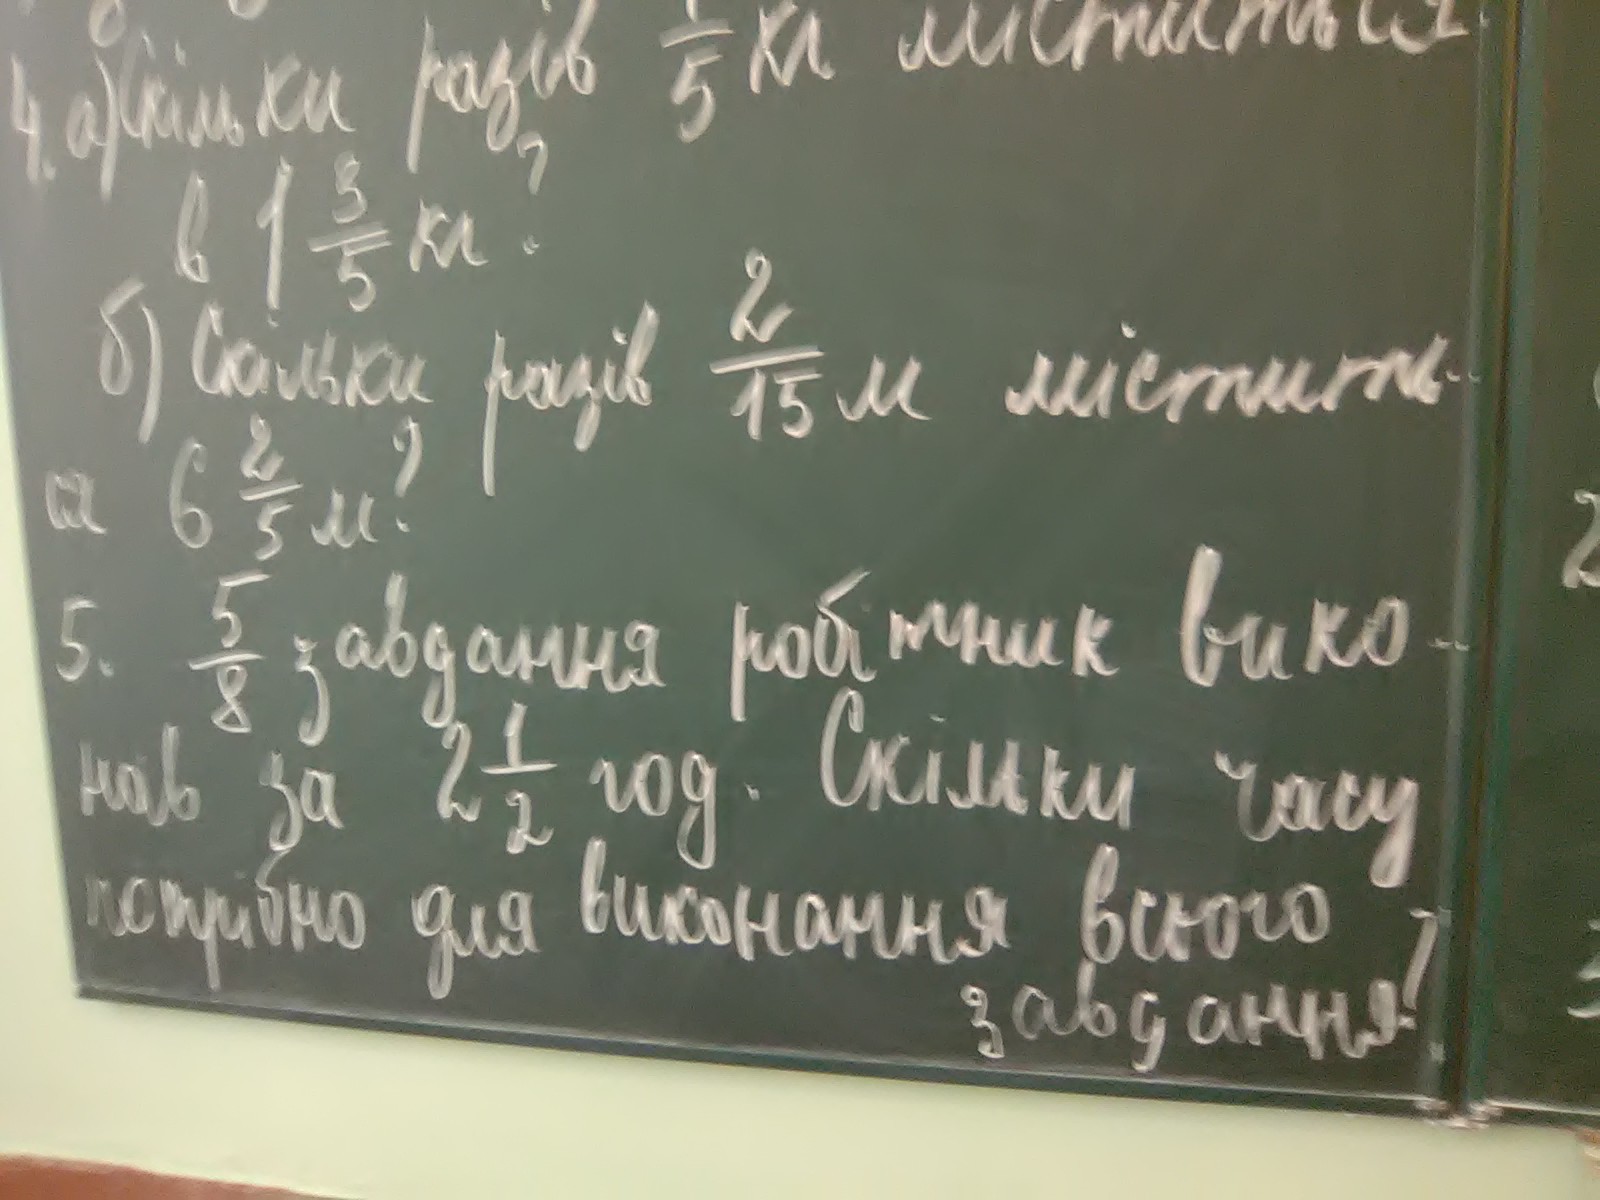 4. а) Скільки разів 1/5 кг міститься
в 1 3/5 кг?
б) Скільки разів 2/15 м містить-
ся 6 2/5 м?
5. 5/8 завдання робітник вико-
нав за 2 1/2 год. Скільки часу
потрібно для виконання всього
завдання?
2